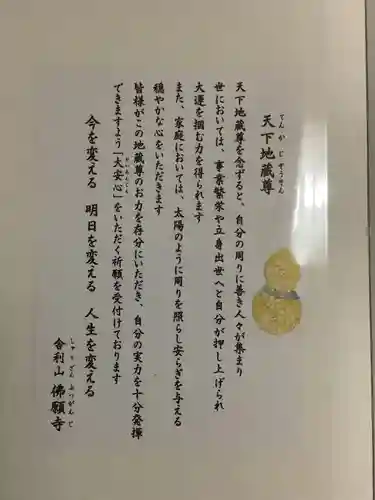 天下地蔵尊
てんかじぞうそん
天下地蔵尊を念ずると、自分の周りに善き人々が集まり
世においては、事業繁栄や立身出世へと自分が押し上げられ
大運を掴む力を得られます
また、家庭においては、太陽のように周りを照らし安らぎを与える
穏やかな心をいただきます
皆様がこの地蔵尊のお力を存分にいただき、自分の実力を十分発揮
できますよう「大安心」をいただく祈願を受付けております
だいあんしん
今を変える 明日を変える 人生を変える
舎利山 佛願寺
しゃりざん ぶつがんじ